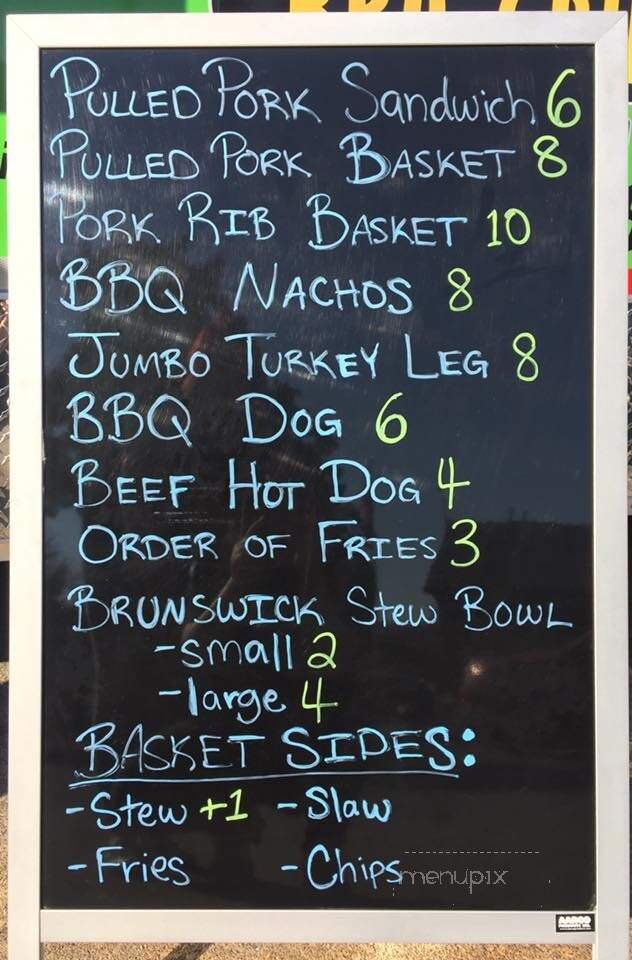 PULLED PORK Sandwich 6
PULLED PORK BASKET 8
PORK RIB BASKET 10
BBQ NACHOS 8
JUMBO TURKEY LEG 8
BBQ DOG 6
BEEF HOT DOG 4
ORDER OF FRIES 3
BRUNSWICK Stew BOWL
-small 2
-large 4
BASKET SIDES:
-Stew +1 -Slaw
-Fries -Chips
menupix
AARCO